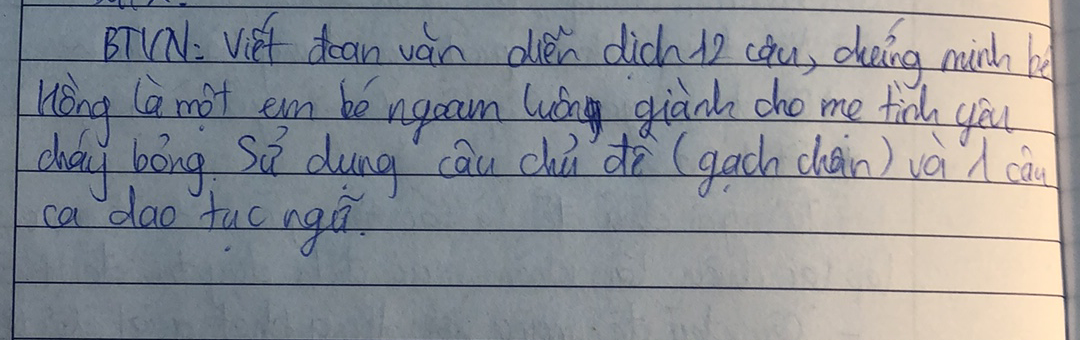 BTVN: Viết đoạn văn diễn dịch 12 câu, chứng minh bé
Hồng là một em bé ngoan luông giành cho mẹ tình yêu
cháy bỏng. Sử dụng câu chủ đề (gạch chân) và 1 câu
ca dao tục ngữ.